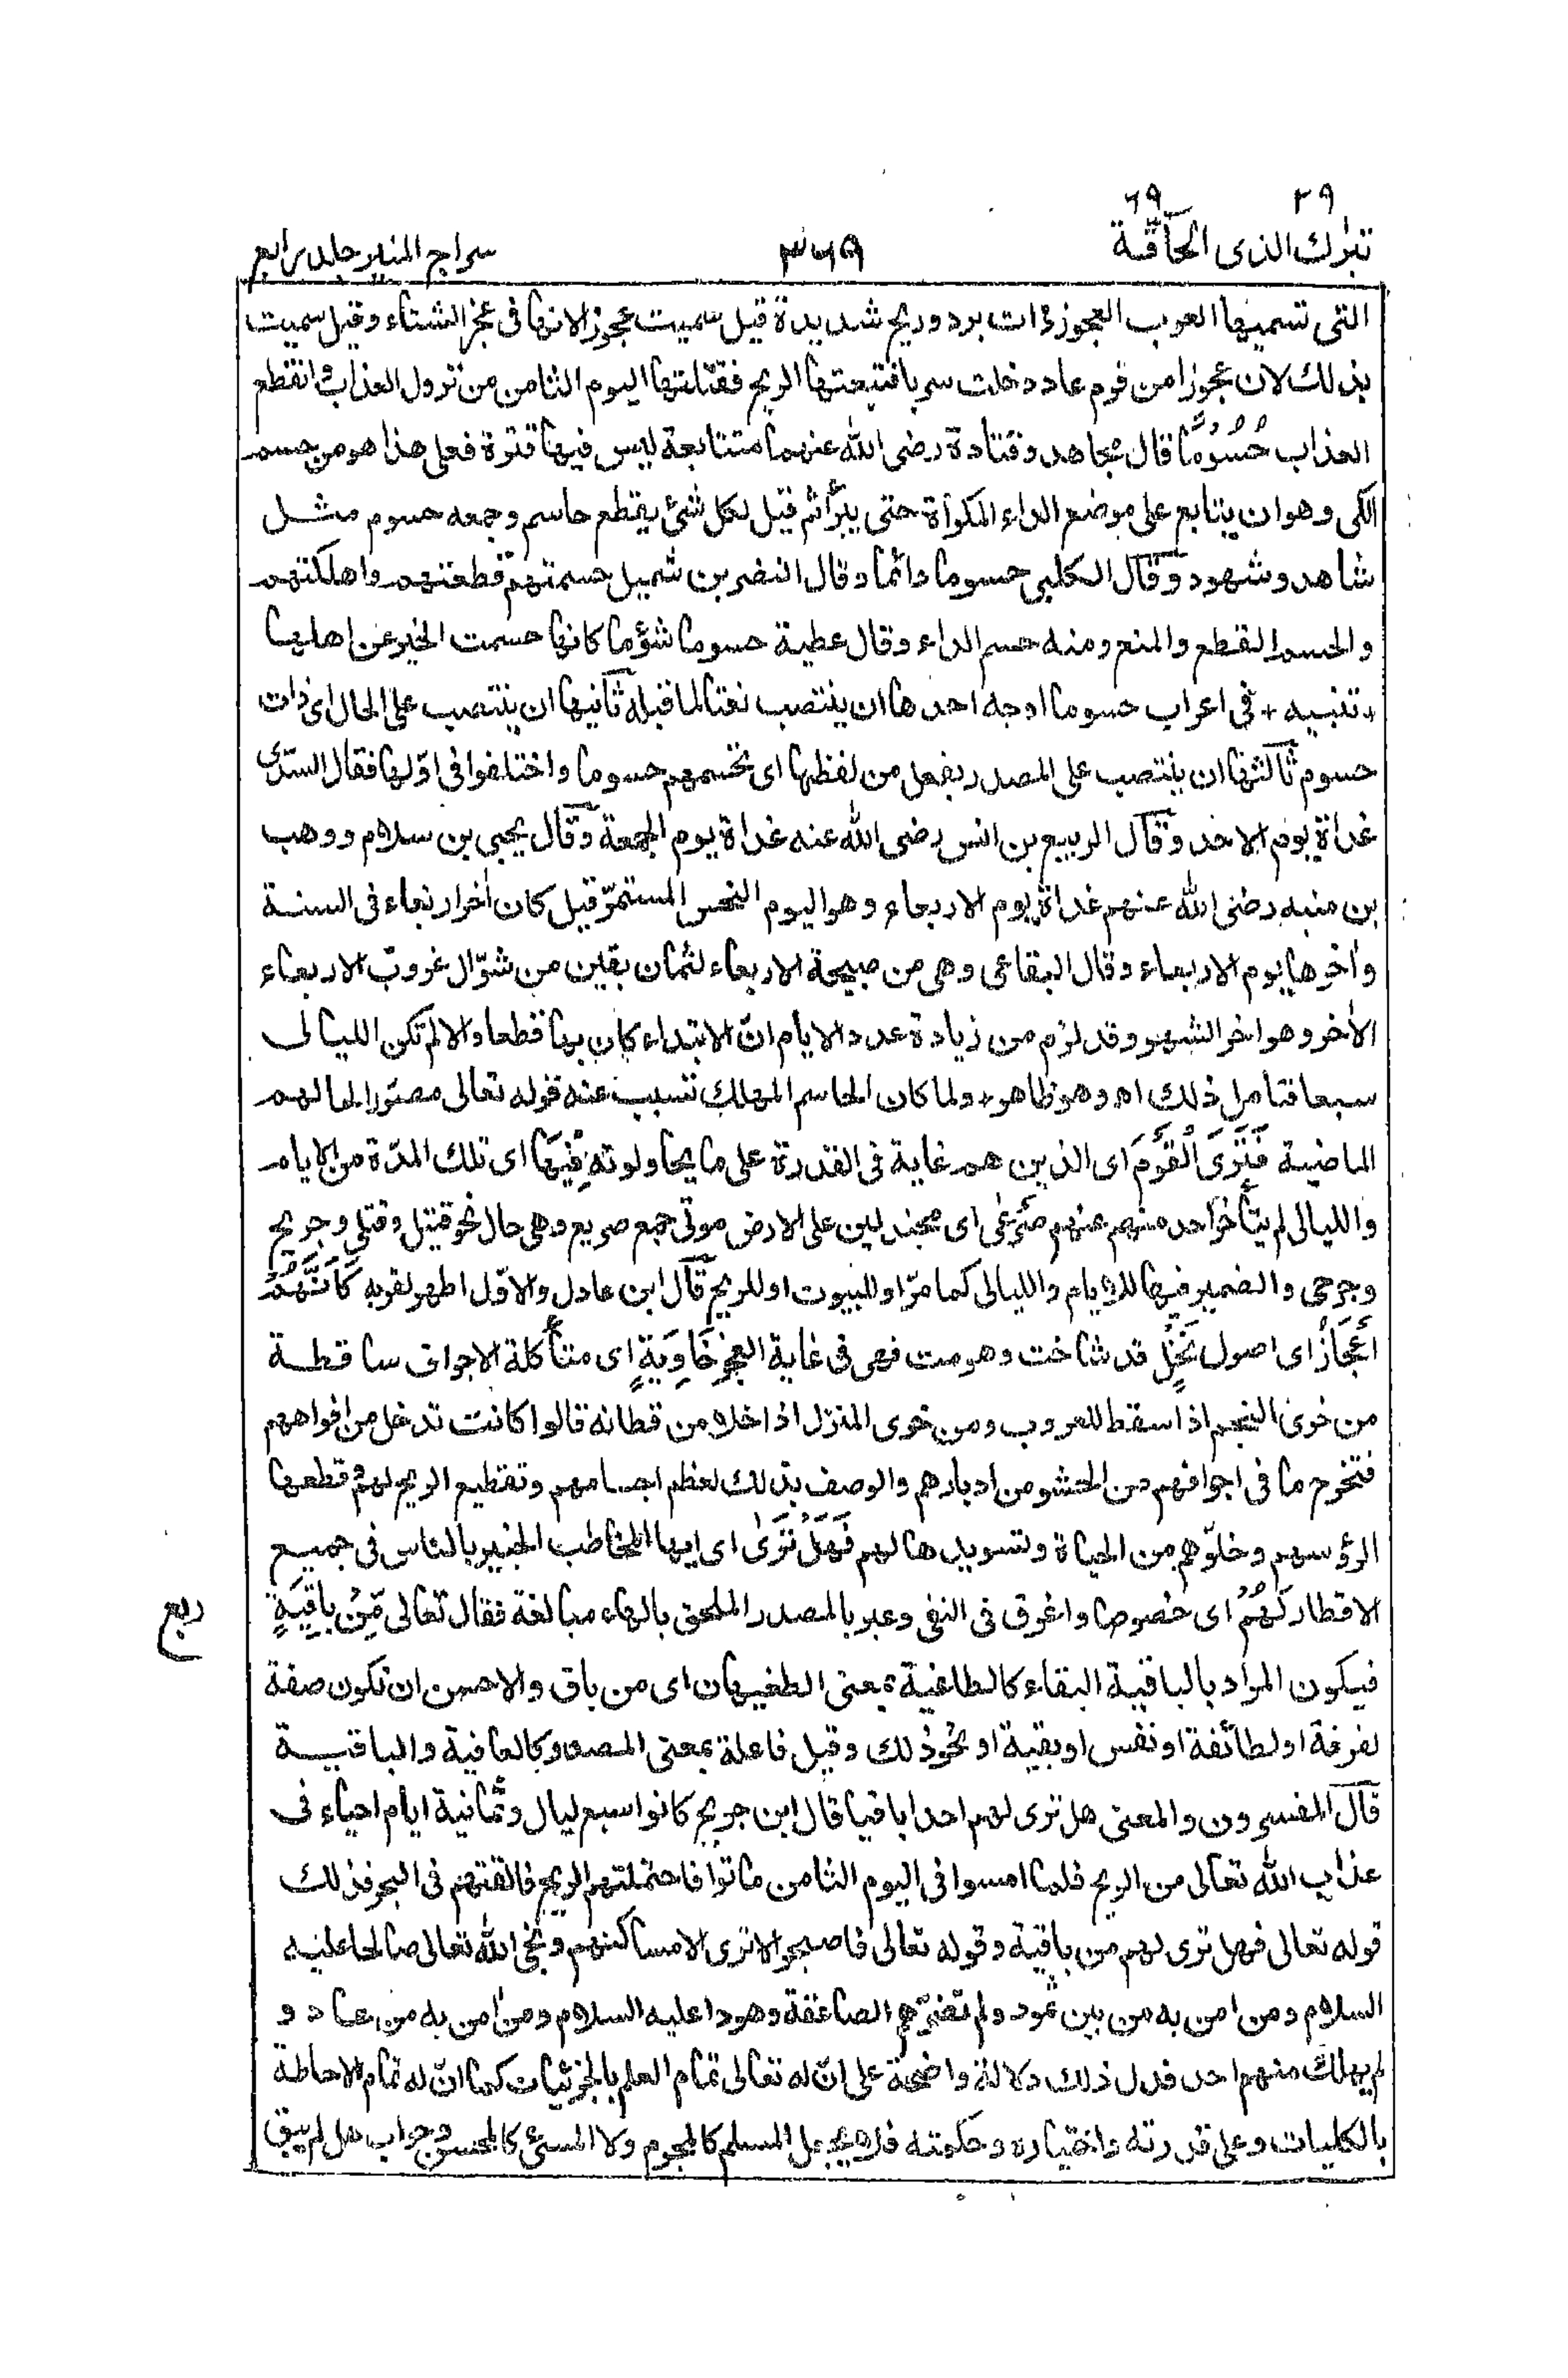 ٢٩ ٦٩
تبٰرك الذى الحآقّة ٣٦٩ سراج المنير جلد رابع
التى تسميها العرب العجوز ذات برد وريح شديدة قيل سميت عجوزا لانها فى عجز الشتاء وقيل سميت
بذلك لان عجوزا من قوم عاد دخلت سربا فتبعتها الريح فقتلتها اليوم الثامن من نزول العذاب وانقطع
العذاب حُسُوْمًا قال مجاهد وقتادة رضى الله عنهما متتابعة ليس فيها فترة فعلى هذا هو من حسم
الكى وهو ان يتابع على موضع الداء المكواة حتى يبرأ ثم قيل لكل شئ يقطع حاسم وجمعه حسوم مثل
شاهد وشهود وقال الكلبى حسوما دائما وقال النضر بن شميل حسمتهم قطعتهم واهلكتهم
والحسم القطع والمنع ومنه حسم الداء وقال عطية حسوما شؤما كانها حسمت الخير عن اهلها
+ تنبيه + فى اعراب حسوما اوجه احدها ان ينتصب نعتا لما قبله ثانيها ان ينتصب على الحال اى ذات
حسوم ثالثها ان ينتصب على المصدر بفعل من لفظها اى تحسمهم حسوما واختلفوا فى اوّلها فقال السدّى
غداة يوم الاحد وقال الربيع بن انس رضى الله عنه غداة يوم الجمعة وقال يحيى بن سلام ووهب
بن منبه رضى الله عنهم غداة يوم الاربعاء وهو اليوم النحس المستمرّ قيل كان اٰخر اربعاء فى السنة
واٰخرها يوم الاربعاء وقال البقاعى وهى من صبيحة الاربعاء لثمان بقين من شوّال غروب الاربعاء
الاٰخر وهو اٰخر الشهر وقد لزم من زيادة عدد الايام انّ الابتداء كان بها قطعا والا لم تكن الليالى
سبعا فتامل ذلك اه وهو ظاهر + ولما كان الحاسم المهلك تسبب عنه قوله تعالى مصوّرا لحالهم
الماضية فَتَرَى الْقَوْمَ اى الذين هم غاية فى القدرة على ما يحاولونه فِيْهَا اى تلك المدّة من الايام
والليالى لم يتأخر احد منهم عنهم صَرْعٰى اى مجندلين على الارض موتى جمع صريع وهى حال نحو قتيل وقتلى وجريح
وجرحى والضمير فيها للايام والليالى كما مرّ او للبيوت او للريح قال ابن عادل والاوّل اظهر لقربه كَاَنَّهُمْ
اَعْجَازُ اى اصول نَخْلٍ قد شاخت وهرمت فهى فى غاية العجز خَاوِيَةٍ اى متأكلة الاجواف ساقطة
من خوى النجم اذا سقط للغروب ومن خوى المنزل اذا خلا من قطانه قالوا كانت تدخل من افواههم
فتخرج ما فى اجوافهم من الحشو من ادبارهم والوصف بذلك لعظم اجسامهم وتقطيع الريح لهم وقطعها
لرؤسهم وخلوّهم من الحياة وتسويدها لهم فَهَلْ تَرٰى اى ايها المخاطب الخبير بالناس فى جميع
الاقطار لَهُمْ اى خصوصا واغرق فى النفى وعبر بالمصدر الملحق بالهاء مبالغة فقال تعالى مِّنْ بَاقِيَةٍ
فيكون المراد بالباقية البقاء كالطاغية بمعنى الطغيان اى من باق والاحسن ان تكون صفة
لفرقة او لطائفة او نفس او بقية او نحو ذلك وقيل فاعلة بمعنى المصدر كالعافية والباقية
قال المفسرون والمعنى هل ترى لهم احدا باقيا قال ابن جريج كانوا سبع ليال وثمانية ايام احياء فى
عذاب الله تعالى من الريح فلما امسوا فى اليوم الثامن ماتوا فاحتملتهم الريح فالقتهم فى البحر فذلك
قوله تعالى فهل ترى لهم من باقية وقوله تعالى فاصبحوا لا ترى الا مساكنهم ونجى الله تعالى صالحا عليه
السلام ومن اٰمن به من بين ثمود ولم تضرّهم الصاعقة وهودا عليه السلام ومن اٰمن به من عاد و
لم يهلك منهم احد فدل ذلك دلالة واضحة على انّ له تعالى تمام العلم بالجزئيات كما انّ له تمام الاحاطة
بالكليات وعلى قدرته واختياره وحكمته فلا يجعل المسلم كالمجرم ولا المسئ كالمحسن وجواب هل لم يبق
ربع